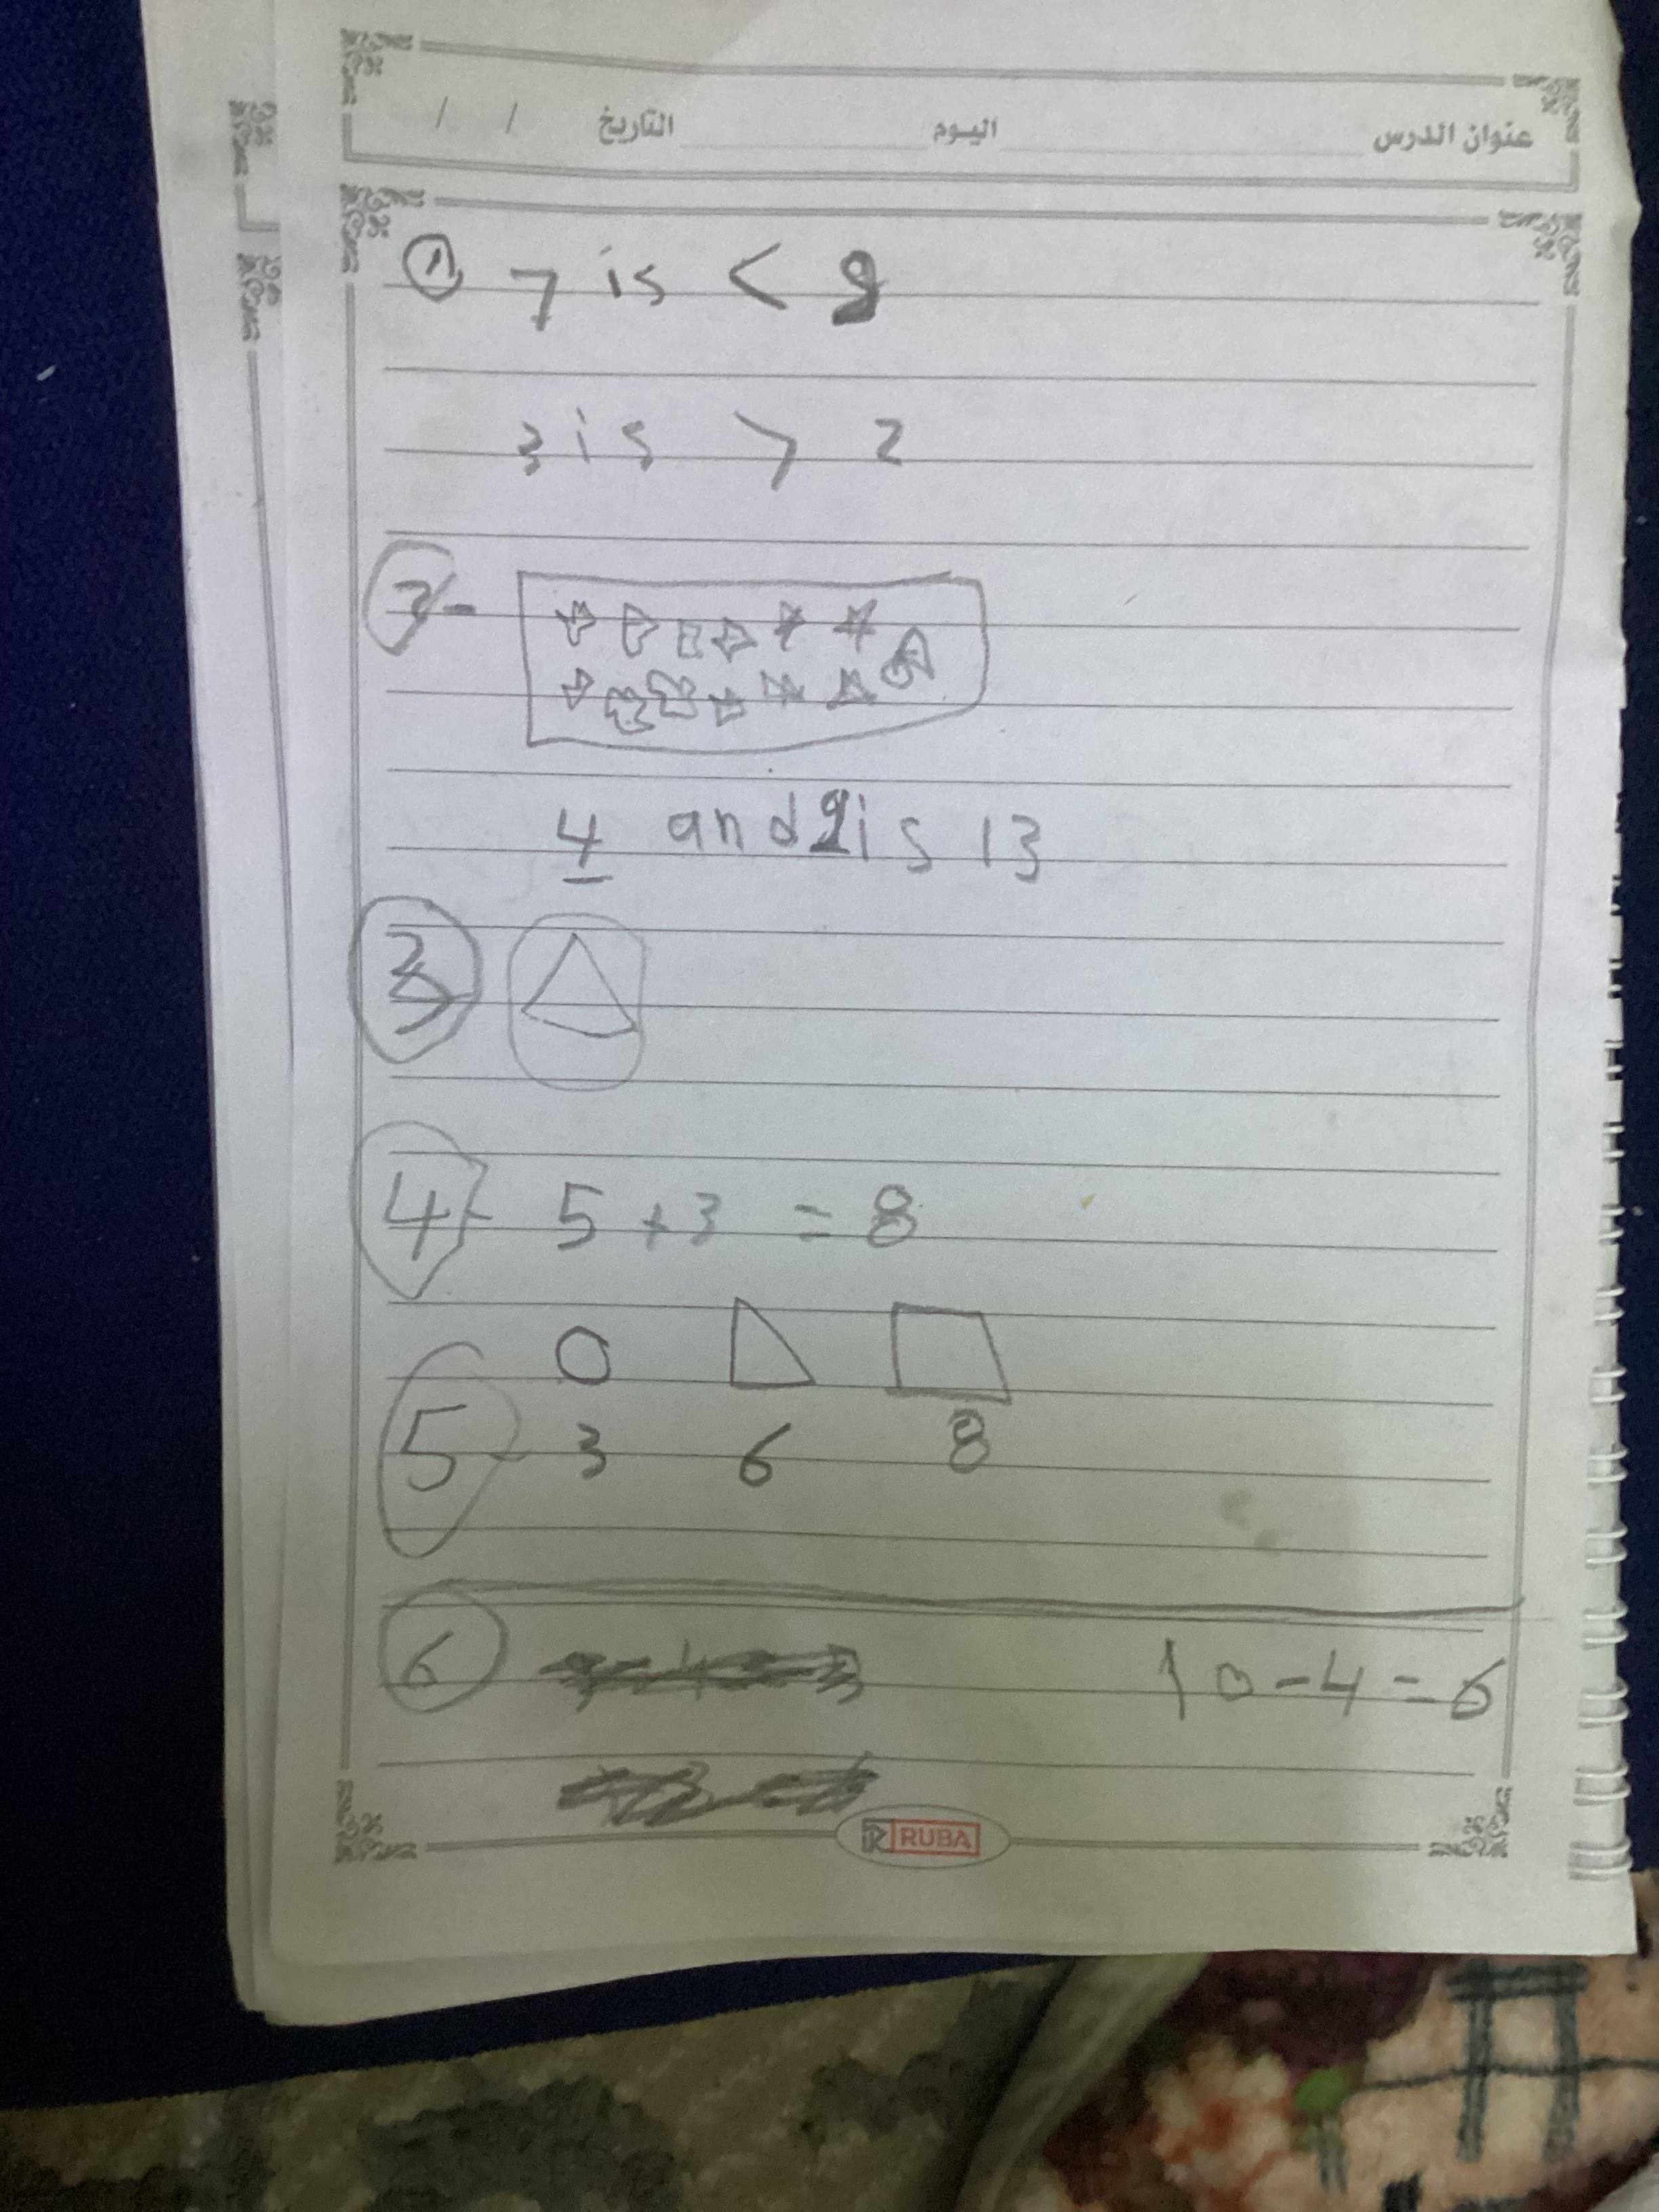 عنوان الدرس اليوم التاريخ / /
① 7 is < 8
3 is > 2
2-
4 and 9 is 13
3
4- 5 + 3 = 8
5- 3 6 8
6 10 - 4 = 6
RUBA